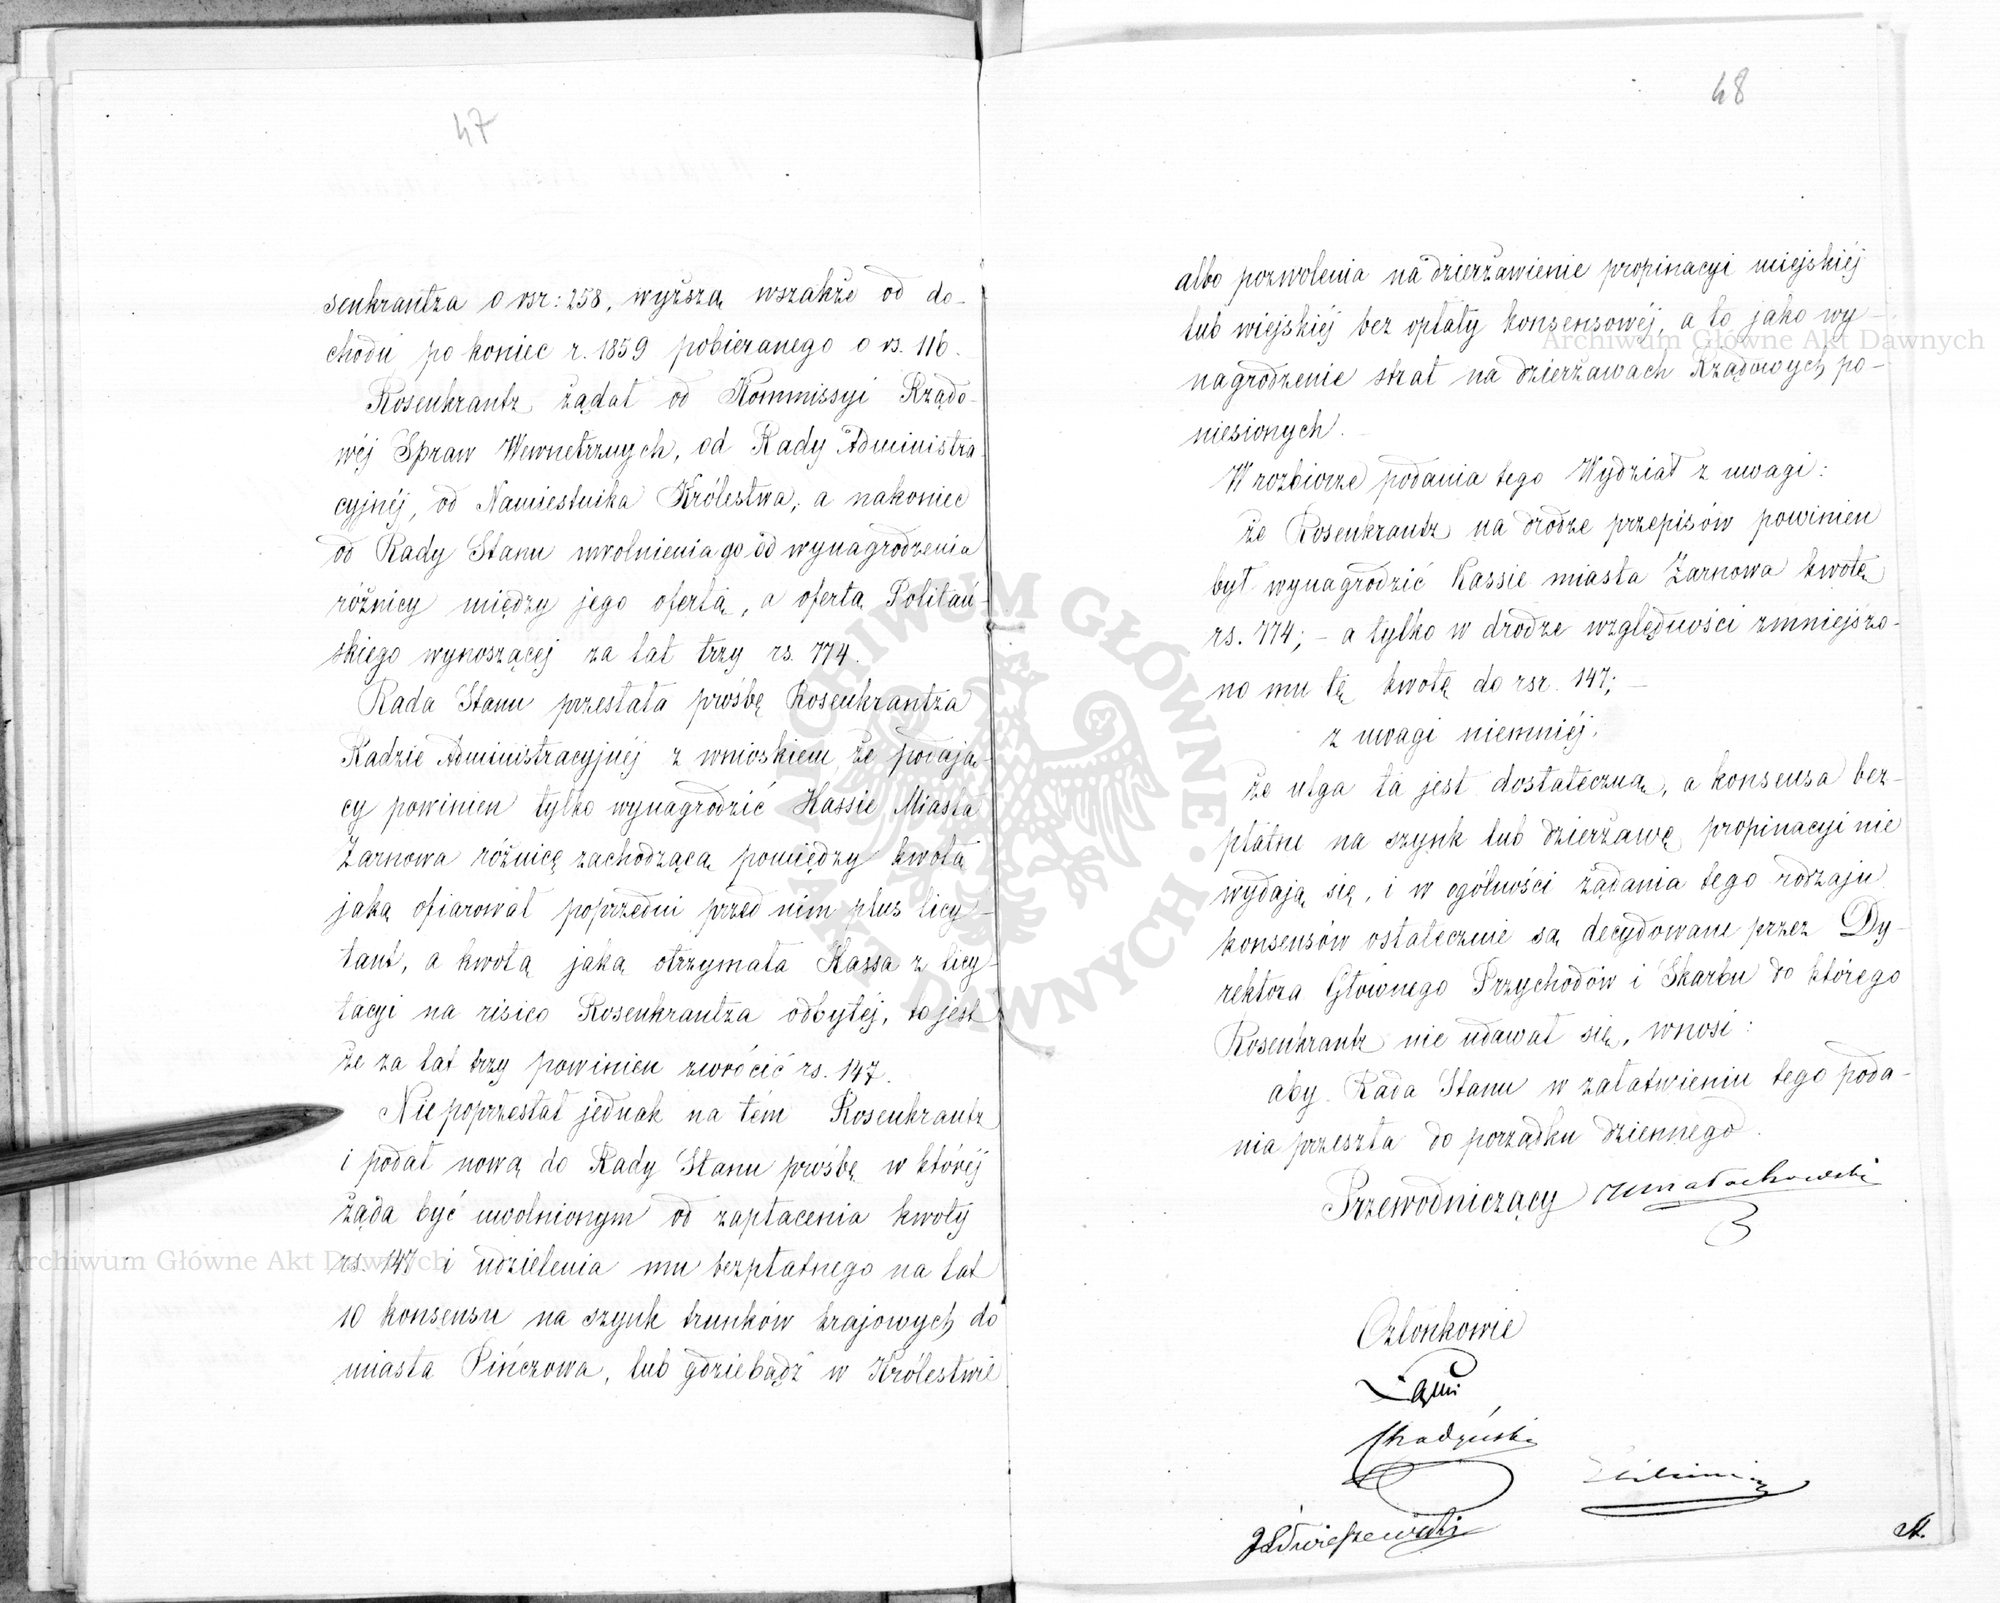 47
senkrantza o rsr: 258, wyższą wszakże od do-
chodu po koniec r. 1859 pobieranego o rs. 116.
Rosenkrantz żądał od Kommissyi Rządo-
wéj Spraw Wewnętrznych, od Rady Administra-
cyjnéj, od Namiestnika Królestwa, a nakoniec
od Rady Stanu uwolnienia go od wynagrodzenia
różnicy między jego ofertą, a ofertą Politań-
skiego wynoszącej za lat trzy rs. 774.
Rada Stanu przesłała prośbę Rosenkrantza
Radzie Administracyjnéj z wnioskiem że podają-
cy powinien tylko wynagrodzić Kassie Miasta
Żarnowa różnicę zachodzącą pomiędzy kwotą
jaką ofiarował poprzedni przed nim plus licy-
tant, a kwotą jaką otrzymała Kassa z licy-
tacyi na risico Rosenkrantza odbytéj, to jest
że za lat trzy powinien zwrócić rs. 147.
Nie poprzestał jednak na tém Rosenkrantz
i podał nową do Rady Stanu prośbę w któréj
żąda być uwolnionym od zapłacenia kwoty
rs. 147 i udzielenia mu bezpłatnego na lat
10 konsensu na szynk trunków krajowych do
miasta Pińczowa, lub gdziebądź w Królestwie
48
albo pozwolenia na dzierżawienie propinacyi miejskiéj
lub wiejskiéj bez opłaty konsensowéj, a to jako wy-
nagrodzenie strat na dzierżawach Rządowych po-
niesionych.
W rozbiorze podania tego Wydział z uwagi:
że Rosenkrantz na drodze przepisów powinien
był wynagrodzić Kassie miasta Żarnowa kwotę
rs. 774; – a tylko w drodze względności zmniejszo-
no mu tę kwotę do rsr. 147; –
z uwagi niemniéj,
że ulga ta jest dostateczną, a konsensa bez-
płatne na szynk lub dzierżawę propinacyi nie
wydają się, i w ogólności żądania tego rodzaju
konsensów ostatecznie są decydowane przez Dy-
rektora Głównego Przychodów i Skarbu do którego
Rosenkrantz nie udawał się, wnosi:
aby Rada Stanu w załatwieniu tego poda-
nia przeszła do porządku dziennego.
Przewodniczący
Członkowie
Archiwum Główne Akt Dawnych
Archiwum Główne Akt Dawnych
ARCHIWUM GŁÓWNE AKT DAWNYCH